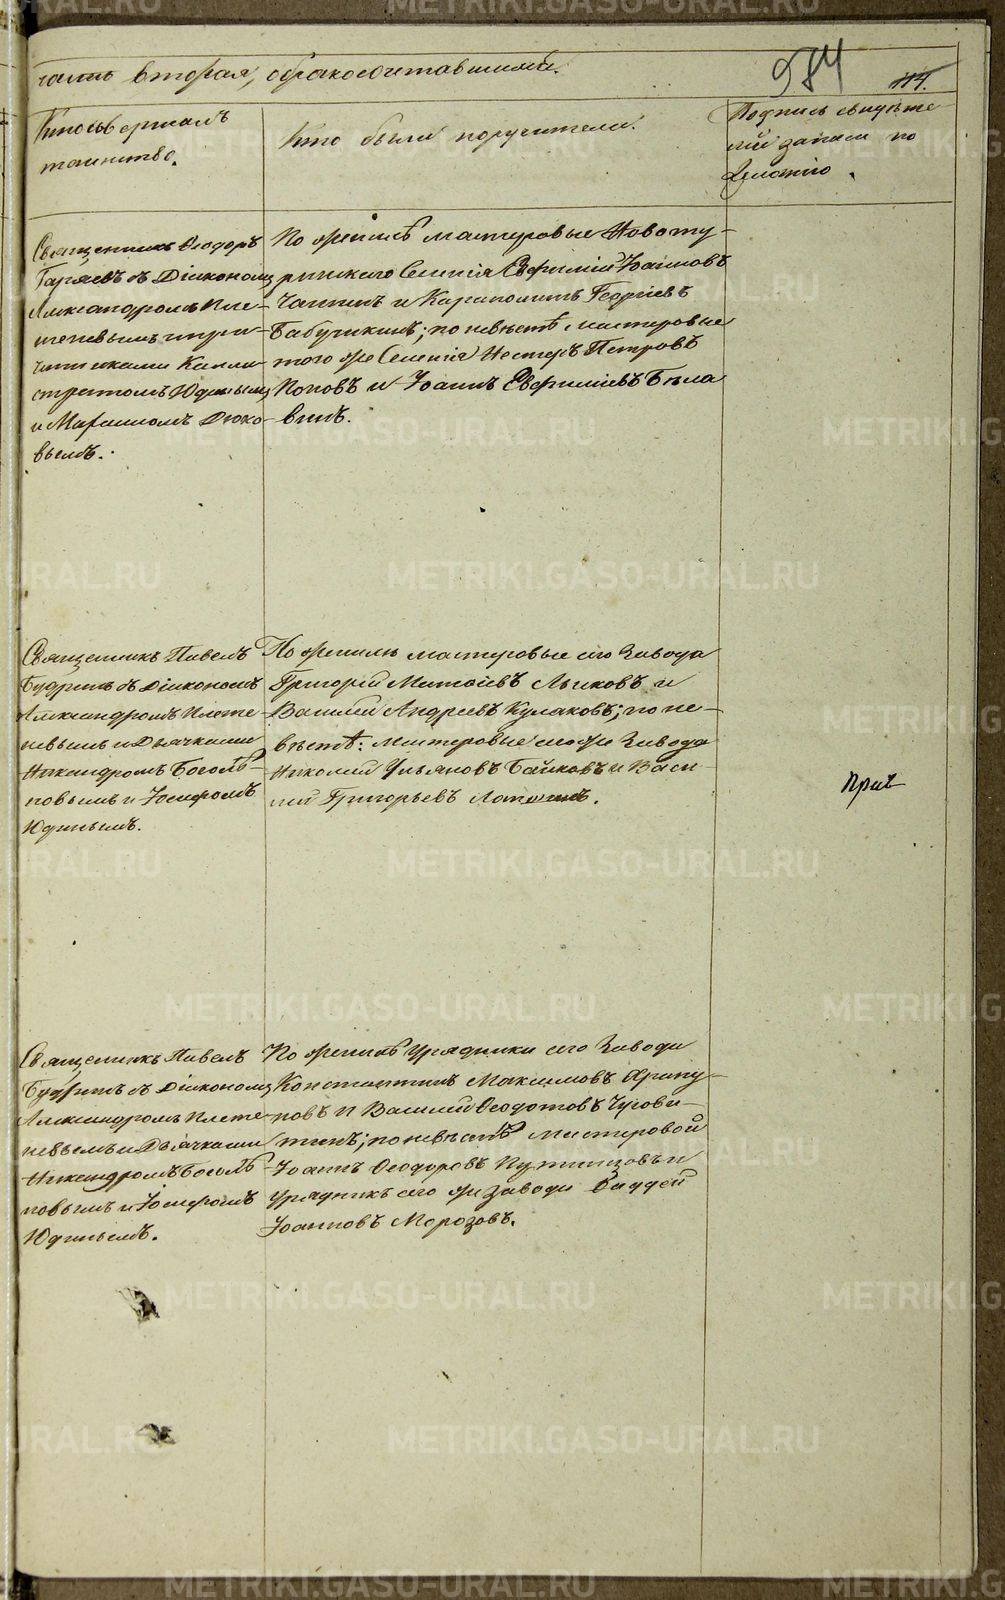 часть вторая, о бракосочетавшихся.
984
114.
Кто совершалъ
таинство.
Кто были поручители.
Подпись свидѣте
лей записи по
желанію.
Священникъ Ѳеодоръ
съ Діакономъ
Александромъ Пле-
теневымъ и при-
четниками Калли-
стратомъ Юдинымъ
и Дюко-
вымъ.
По женихѣ мастеровые Новоту-
ринскаго Селенія Евфимій Іоанновъ
и Георгіевъ
Бабушкинъ; по невѣстѣ мастеровые
того же Селенія Несторъ Петровъ
Поповъ и Іоаннъ Евфиміевъ Бѣла
винъ.
Священникъ Павелъ
Будринъ съ Діакономъ
Александромъ Плете-
невымъ и Дьячками
Никандромъ Боголѣ-
повымъ и Іосифомъ
Юдинымъ.
По женихѣ мастеровые сего Завода
Григорій Матѳіевъ Лыковъ и
Василій Андреевъ Кулаковъ; по не-
вѣстѣ: мастеровые сего же Завода
Николай Ульяновъ Байковъ и Васи
лій Григорьевъ
Священникъ Павелъ
Будринъ съ Діакономъ
Александромъ Плете
невымъ и Дьячками
Никандромъ Боголѣ
повымъ и Іосифомъ
Юдинымъ.
По женихѣ Урядники сего Завода
Константинъ Максимовъ Арапу-
повъ и Василій Ѳеодотовъ
по невѣстѣ Мастеровой
Іоаннъ Ѳеодоровъ Путинцовъ и
Урядникъ сего же завода Ѳаддей
Іоанновъ Морозовъ.
METRIKI.GASO-URAL.RU